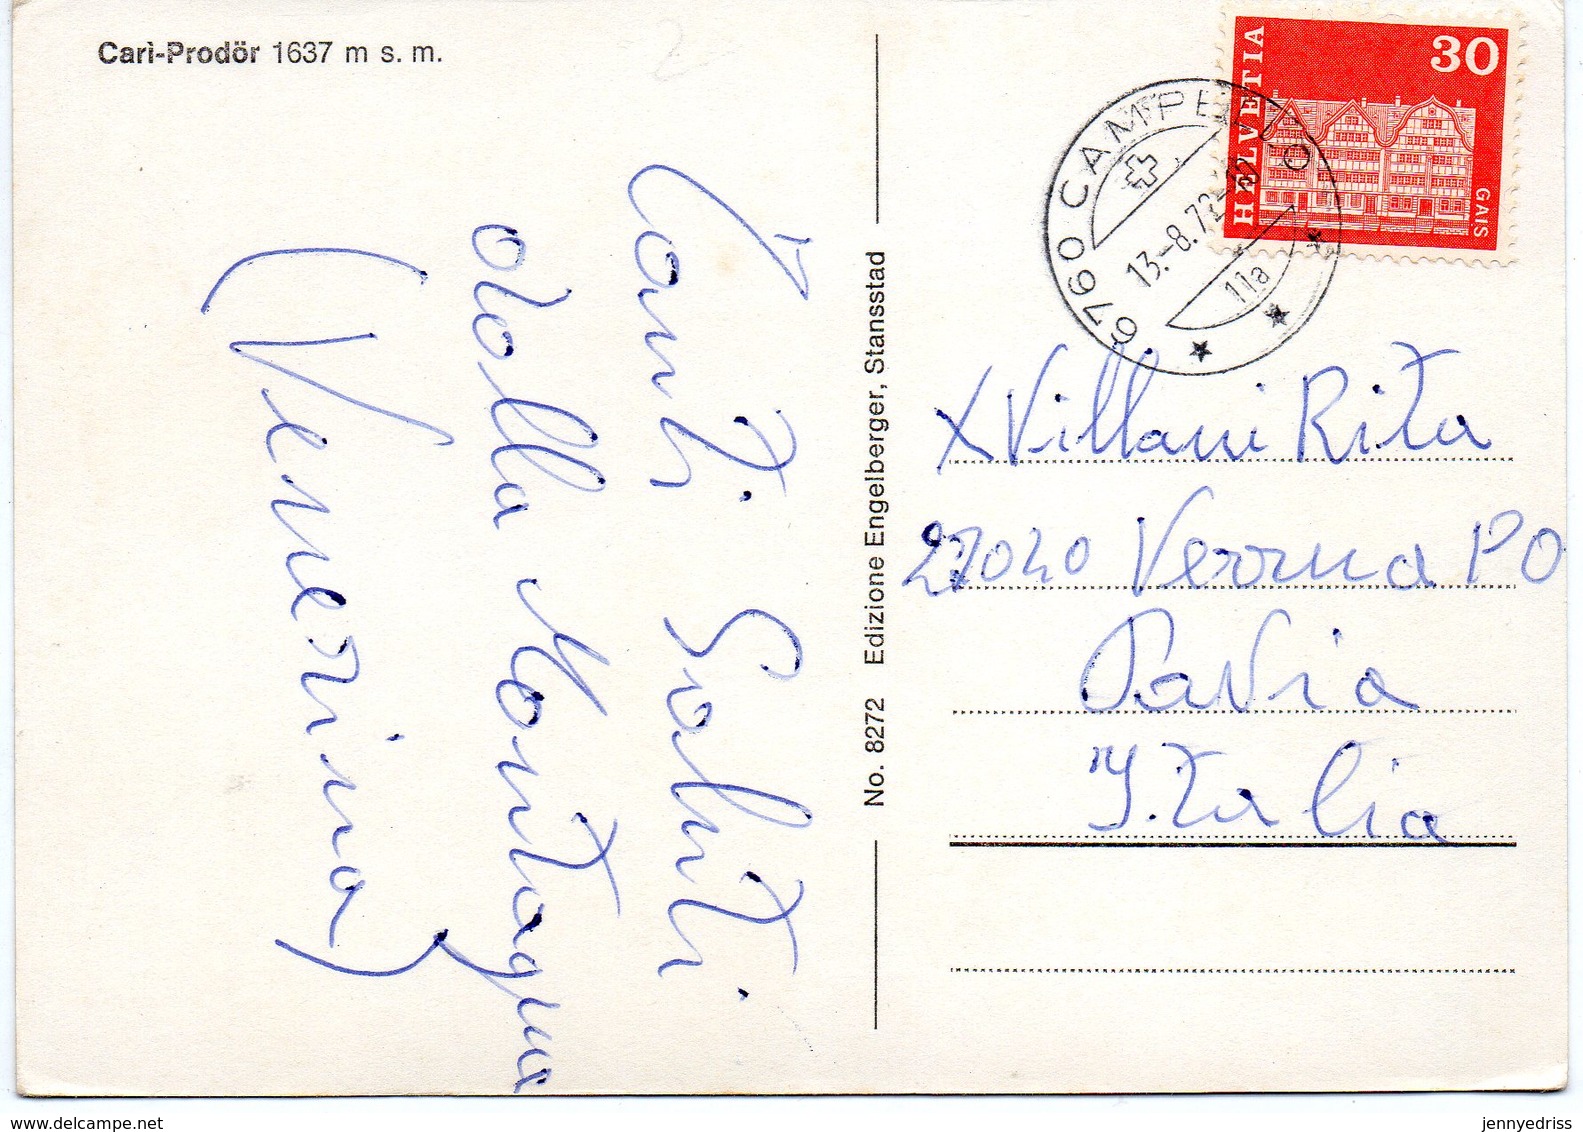 Carì-Prodör 1637 m s. m.
Tanti Saluti
dalla Montagna
(Venerina)
No. 8272 Edizione Engelberger, Stansstad
HELVETIA
30
GAIS
6760 CAMPELLO
13.-8.72-12
11a
X Villani Rita
27040 Verrua PO
Pavia
Italia
www.delcampe.net
jennyedriss